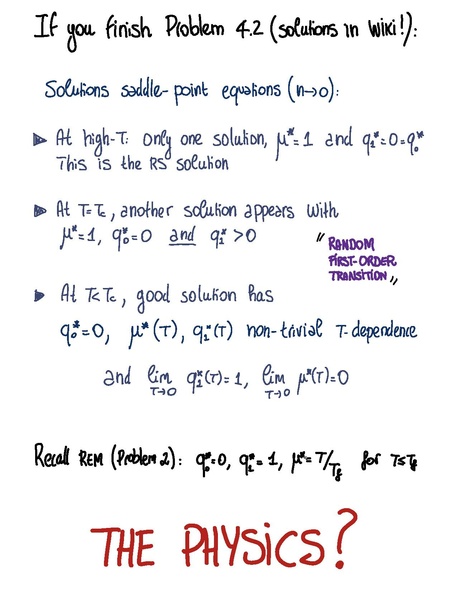 If you finish Problem 4.2 (solutions in Wiki!):
Solutions saddle-point equations (n→0):
At high-T: only one solution, μ*=1 and q₁*=0=q₀*
This is the RS solution
At T=Tc, another solution appears with
μ*=1, q₀*=0 and q₁*>0
"RANDOM
FIRST-ORDER
TRANSITION"
At T<Tc, good solution has
q₀*=0, μ*(T), q₁*(T) non-trivial T-dependence
and lim T→0 q₁*(T)=1, lim T→0 μ*(T)=0
Recall REM (Problem 2): q₀*=0, q₁*=1, μ*=T/Tf for T≤Tf
THE PHYSICS?